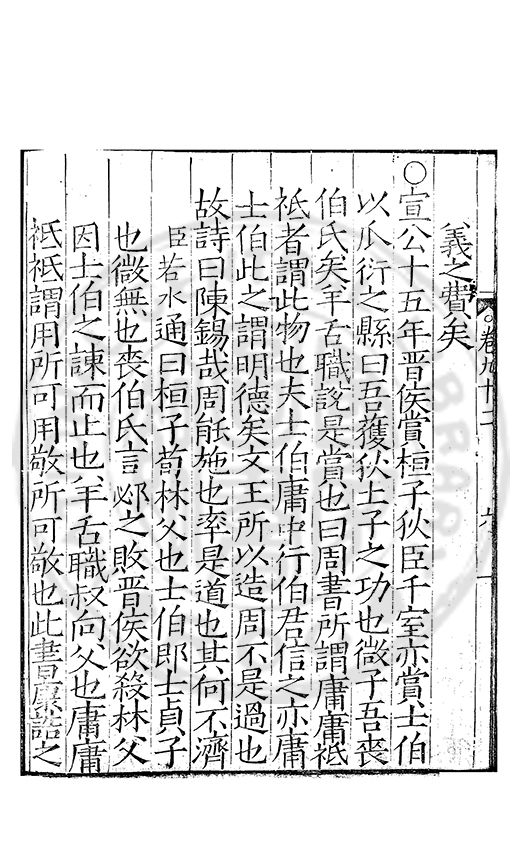 義之費矣
○宣公十五年晋侯賞桓子狄臣千室亦賞士伯
以瓜衍之縣曰吾獲狄土子之功也微子吾喪
伯氏矣羊舌職說是賞也曰周書所謂庸庸祗
祗者謂此物也夫士伯庸中行伯君信之亦庸
士伯此之謂明德矣文王所以造周不是過也
故詩曰陳錫哉周能施也率是道也其何不濟
臣若水通曰桓子荀林父也士伯即士貞子
也微無也喪伯氏言邲之敗晋侯欲殺林父
因士伯之諫而止也羊舌職叔向父也庸庸
祗祗謂用所可用敬所可敬也此書康誥之
卷九十二
六